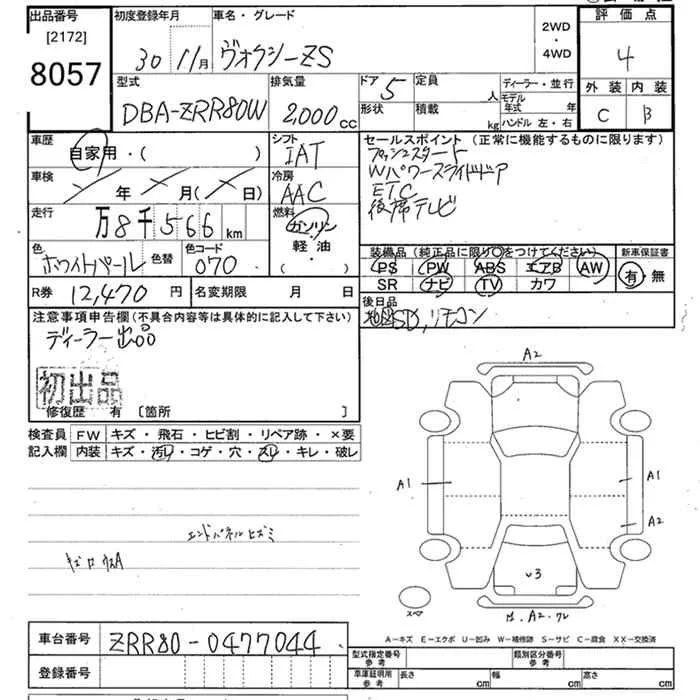 出品番号 初度登録年月 車名・グレード 2WD・4WD 評価点
[2172]
8057 30 11月 ヴォクシーZS 4
型式 排気量 ドア 定員 人 ディーラー・並行 外装 内装
DBA-ZRR80W 2,000cc 5 形状 積載 kg モデル年式 年 ハンドル 左・右 C B
車歴 自家用・( ) シフト IAT セールスポイント (正常に機能するものに限ります)
プッシュスタート
Wパワースライドドア
ETC
後席テレビ
車検 年 月( 日) 冷房 AAC
走行 万8千566km 燃料 ガソリン・軽油・( )
色 ホワイトパール 色替 色コード 070
装備品(純正品に限り○をつけてください) 新車保証書
PS PW ABS エアB AW 有・無
SR ナビ TV カワ
R券 12,470円 名変期限 月 日
後日品
SD,リモコン
注意事項申告欄(不具合内容等は具体的に記入して下さい)
ディーラー出品
初出品
修復歴 有 [箇所 ]
検査員 FW キズ・飛石・ヒビ割・リペア跡・×要
記入欄 内装 キズ・汚レ・コゲ・穴・スレ・キレ・破レ
エンドパネルヒズミ
A2
A1 A1
A2
v3
スペア
A2
A-キズ E-エクボ U-凹み W-補修跡 S-サビ C-腐食 XX-交換済
車台番号 ZRR80-0477044
型式指定番号 参考 類別区分番号 参考
登録番号 車庫証明用 参考 長さ cm 幅 cm 高さ cm